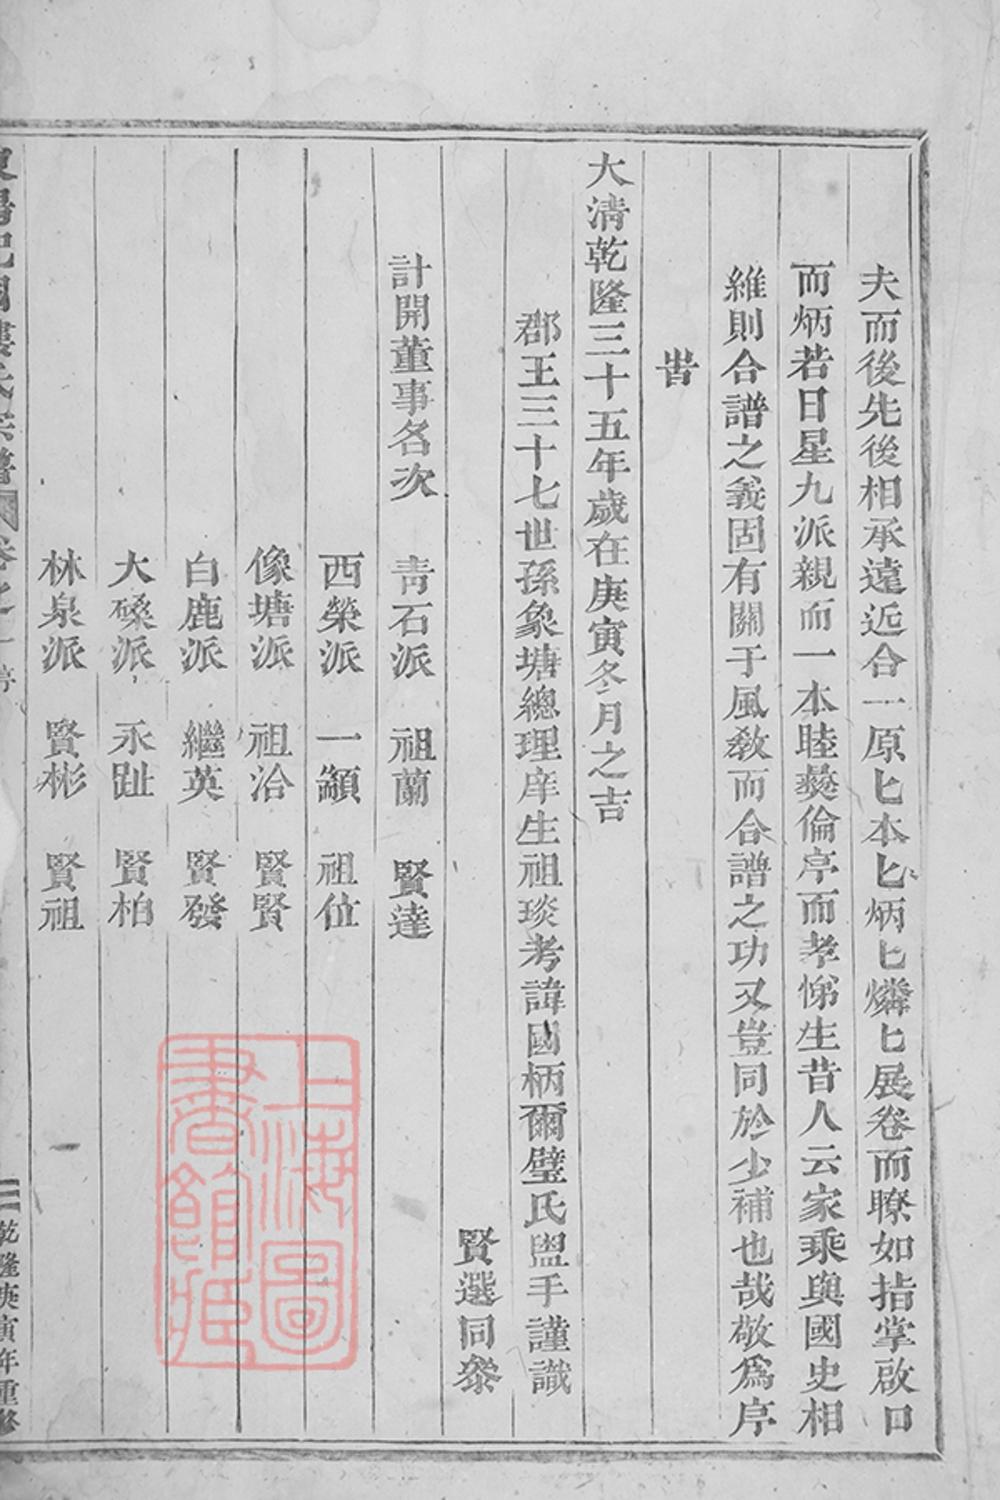 夫而後先後相承遠近合一原匕本匕炳匕燐匕展卷而瞭如指掌啟口
而炳若日星九派親而一本睦彜倫序而孝悌生昔人云家乘與國史相
維則合譜之義固有關于風敎而合譜之功又豈同於少補也哉敬爲序
旹
大清乾隆三十五年歲在庚寅冬月之吉
郡王三十七世孫象塘總理庠生祖琰考諱國柄爾璧氏盥手謹識
賢選同叅
計開董事名次 靑石派 祖蘭 賢達
西榮派 一顓 祖位
像塘派 祖洽 賢賢
白鹿派 繼英 賢發
大磉派 永趾 賢柏
林泉派 賢彬 賢祖
東陽杞國婁氏宗譜 卷之一 序 乾隆庚寅年重修
上海圖書館藏